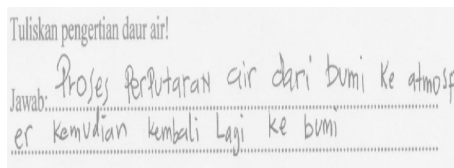 Tuliskan pengertian daur air!
Jawab: Proses Perputaran air dari bumi Ke atmosf
er Kemudian kembali Lagi ke bumi